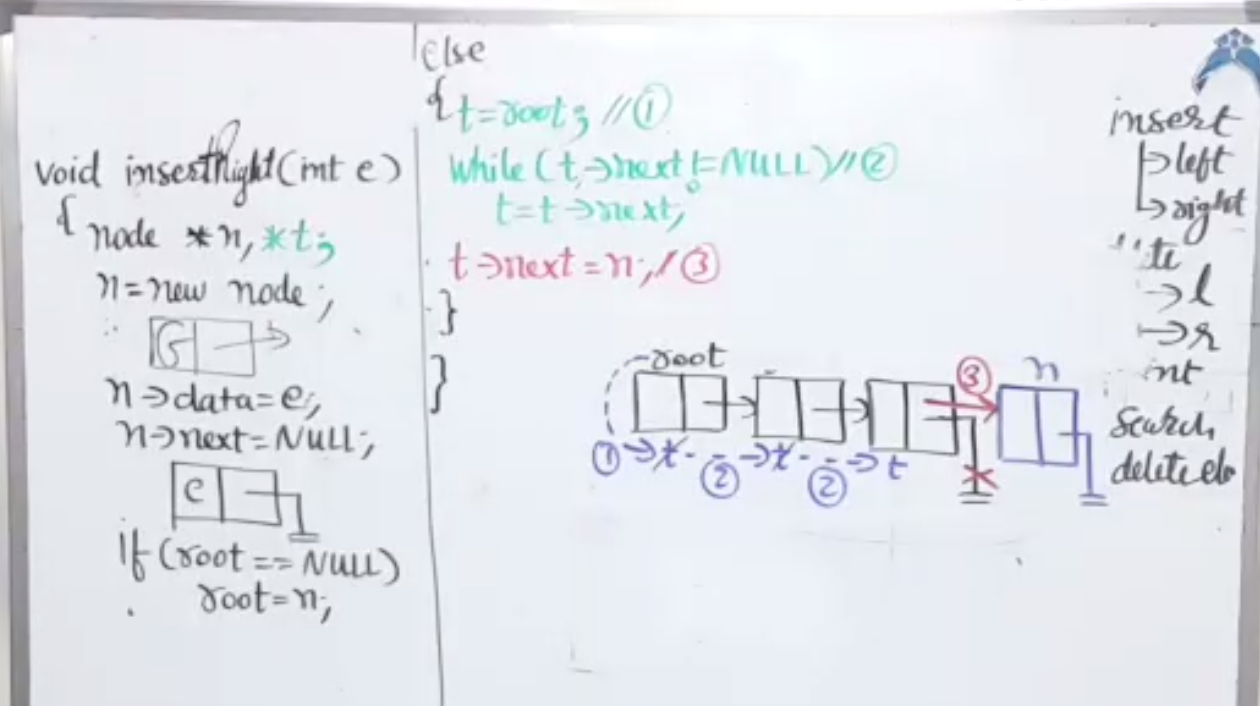 void insertRight(int e)
{ node *n, *t;
n=new node;
G
n->data=e;
n->next=NULL;
e
if (root == NULL)
root=n;
else
{ t=root; //①
while (t->next!=NULL) //②
t=t->next;
t->next=n; //③
}
}
root
③
n
①->t--②->t--②->t
insert
->left
->right
->l
->r
search